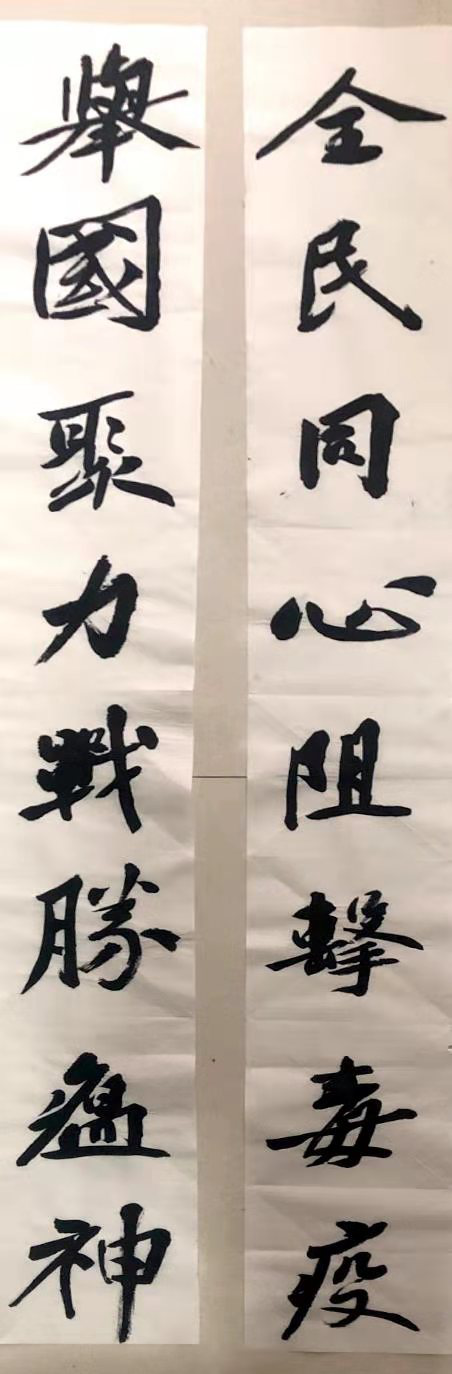 全民同心阻擊毒疫
舉國聚力戰勝瘟神